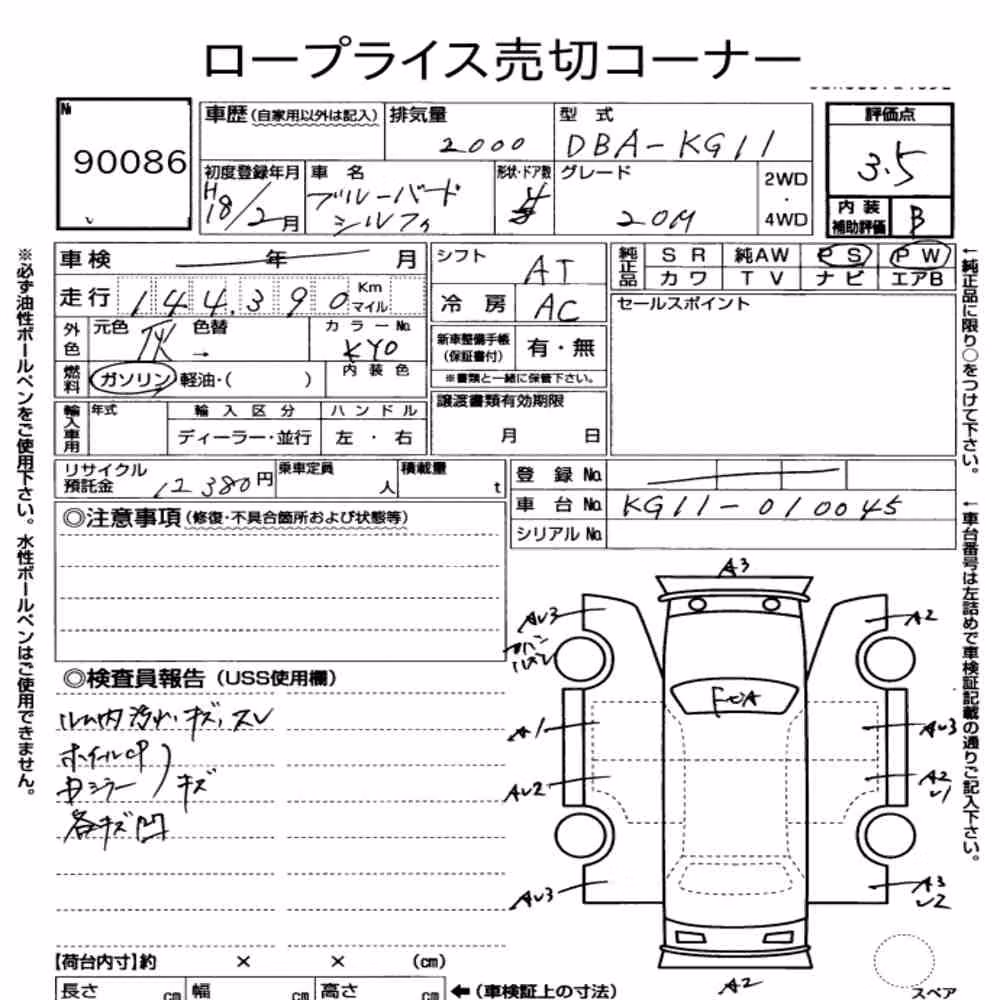 ロープライス売切コーナー
№ 90086
車歴(自家用以外は記入) 排気量 2000 型式 DBA-KG11
評価点 3.5
初度登録年月 H18/2月 車名 ブルーバードシルフィ 形状・ドア数 4 グレード 20M 2WD・4WD
内装補助評価 B
車検 年 月
シフト AT
純正品 SR 純AW PS PW
カワ TV ナビ エアB
走行 144,390 Km マイル
冷房 AC
セールスポイント
外色 元色 灰 色替 → カラーNo. KY0
新車整備手帳(保証書付) 有・無
※書類と一緒に保管下さい。
燃料 ガソリン 軽油・( ) 内装色
譲渡書類有効期限
月 日
輸入車用 年式 輸入区分 ハンドル
ディーラー・並行 左・右
リサイクル預託金 12380円 乗車定員 人 積載量 t
登録No.
車台No. KG11-010045
シリアルNo.
◎注意事項(修復・不具合箇所および状態等)
◎検査員報告(USS使用欄)
ルーム内汚れ・キズ、スレ
ホイールCP
ドミラー)キズ
各キズ凹
A3
AU3
A2
A1
AU3
AU2
A2
U1
AU3
A3
U2
A2
スペア
【荷台内寸】約 × × (cm)
長さ cm 幅 cm 高さ cm ←(車検証上の寸法)
※必ず油性ボールペンをご使用下さい。水性ボールペンはご使用できません。
←純正品に限り○をつけて下さい。
←車台番号は左詰めで車検証記載の通りご記入下さい。